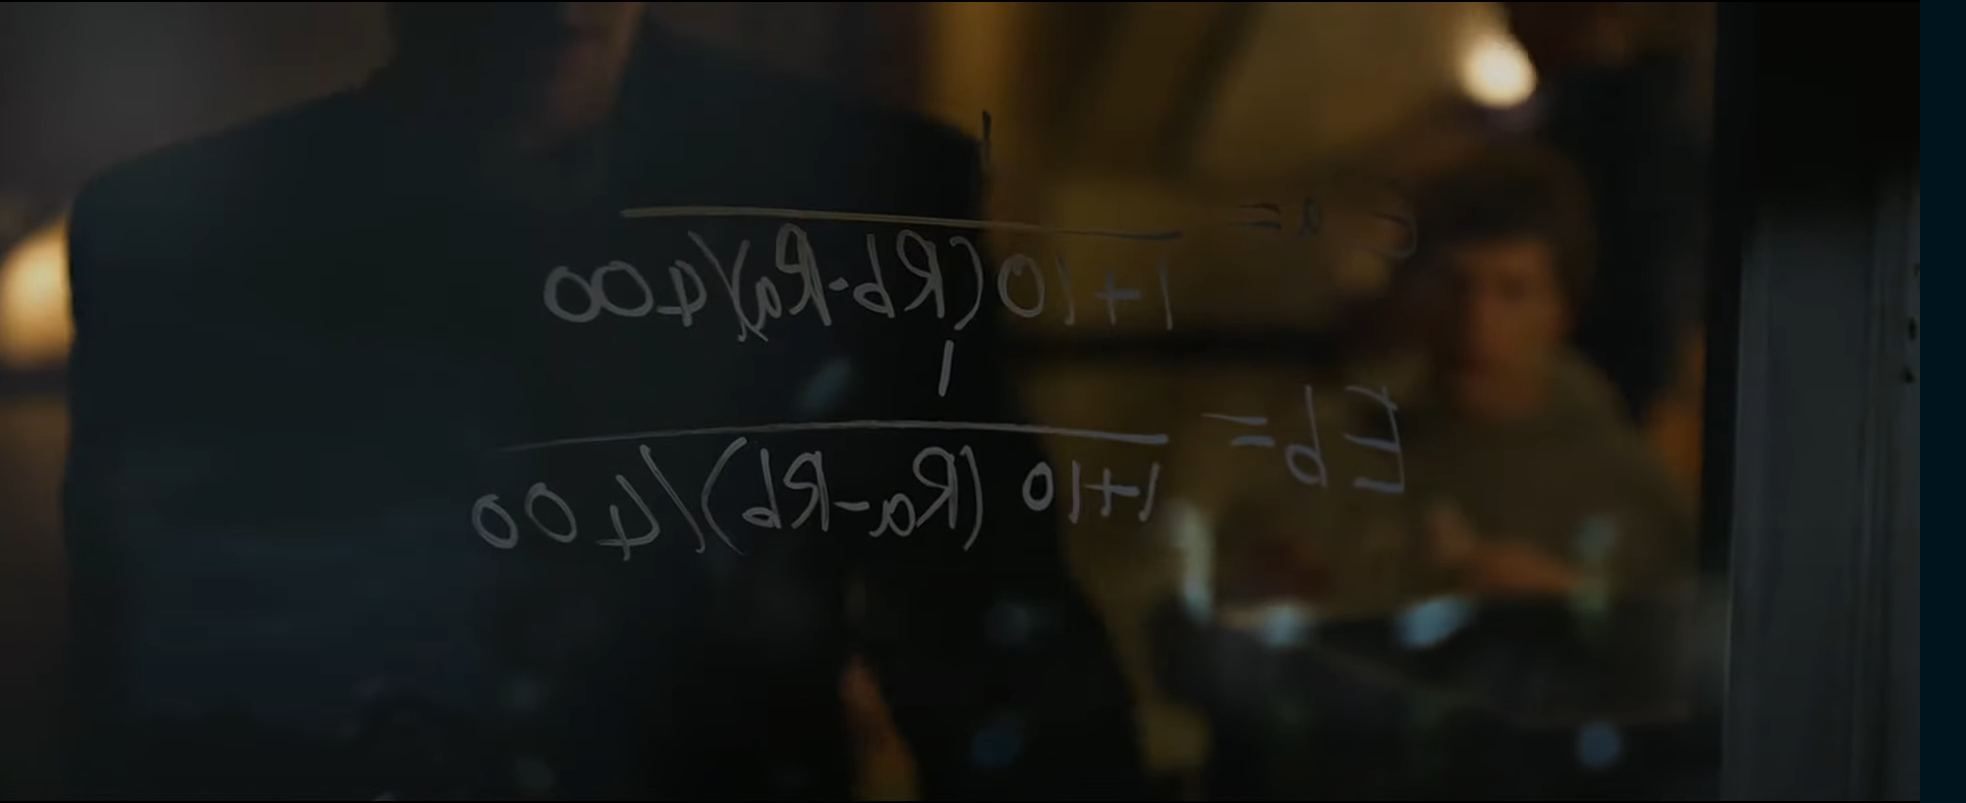 1
Ea =
1+10(Rb-Ra)/400
1
Eb=
1+10(Ra-Rb)/400